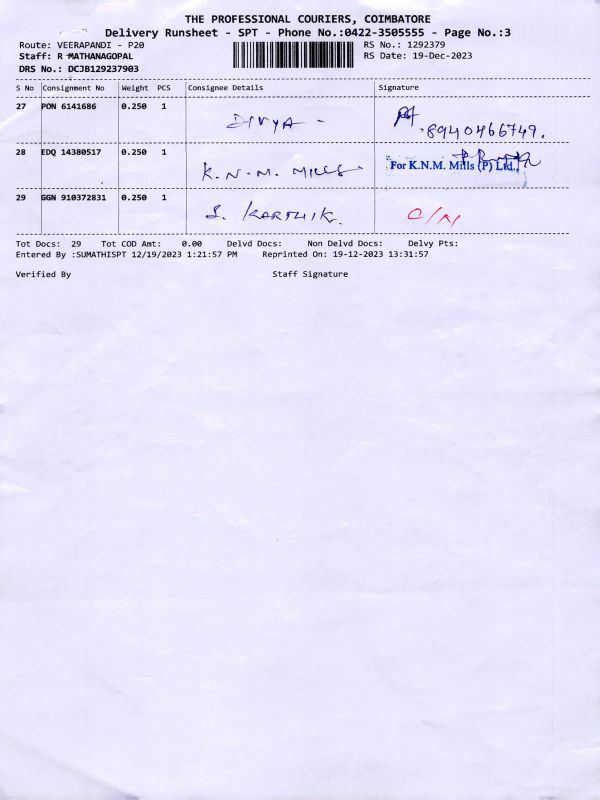 THE PROFESSIONAL COURIERS, COIMBATORE
Delivery Runsheet - SPT - Phone No.:0422-3505555 - Page No.:3
Route: VEERAPANDI - P20 RS No.: 1292379
Staff: R MATHANAGOPAL RS Date: 19-Dec-2023
DRS No.: DCJB129237903
S No Consignment No Weight PCS Consignee Details Signature
27 PON 6141686 0.250 1
DIVYA - 8940466749.
28 EDQ 14380517 0.250 1
K.N.M. MILLS For K.N.M. Mills (P) Ltd.,
29 GGN 910372831 0.250 1
S. KARTHIK.
Tot Docs: 29 Tot COD Amt: 0.00 Delvd Docs: Non Delvd Docs: Delvy Pts:
Entered By :SUMATHISPT 12/19/2023 1:21:57 PM Reprinted On: 19-12-2023 13:31:57
Verified By Staff Signature